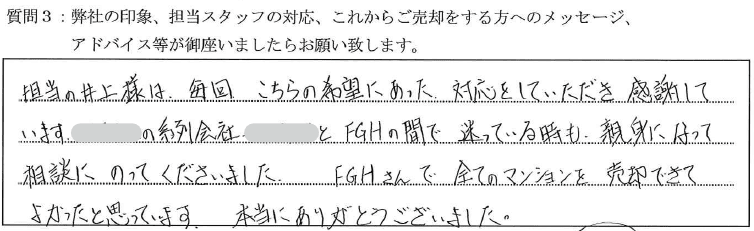 質問3:弊社の印象、担当スタッフの対応、これからご売却をする方へのメッセージ、
アドバイス等が御座いましたらお願い致します。
担当の井上様は、毎回 こちらの希望にあった 対応をしていただき 感謝して
います。 の系列会社 と FGHの間で 迷っている時も、親身になって
相談に のってくださいました。 FGHさんで 全てのマンションを 売却できて
よかったと思っています。 本当にありがとうございました。